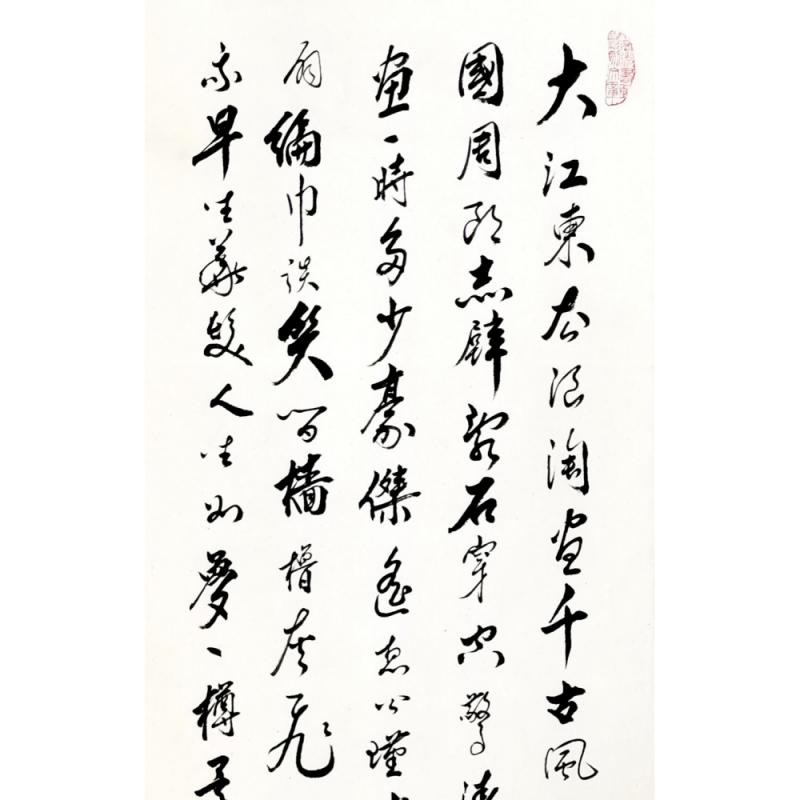 大江東去浪淘盡千古風
國周郎赤壁亂石穿空驚濤
畫一時多少豪傑遙想公瑾
扇綸巾談笑間檣櫓灰飛
我早生華髮人生如夢一樽